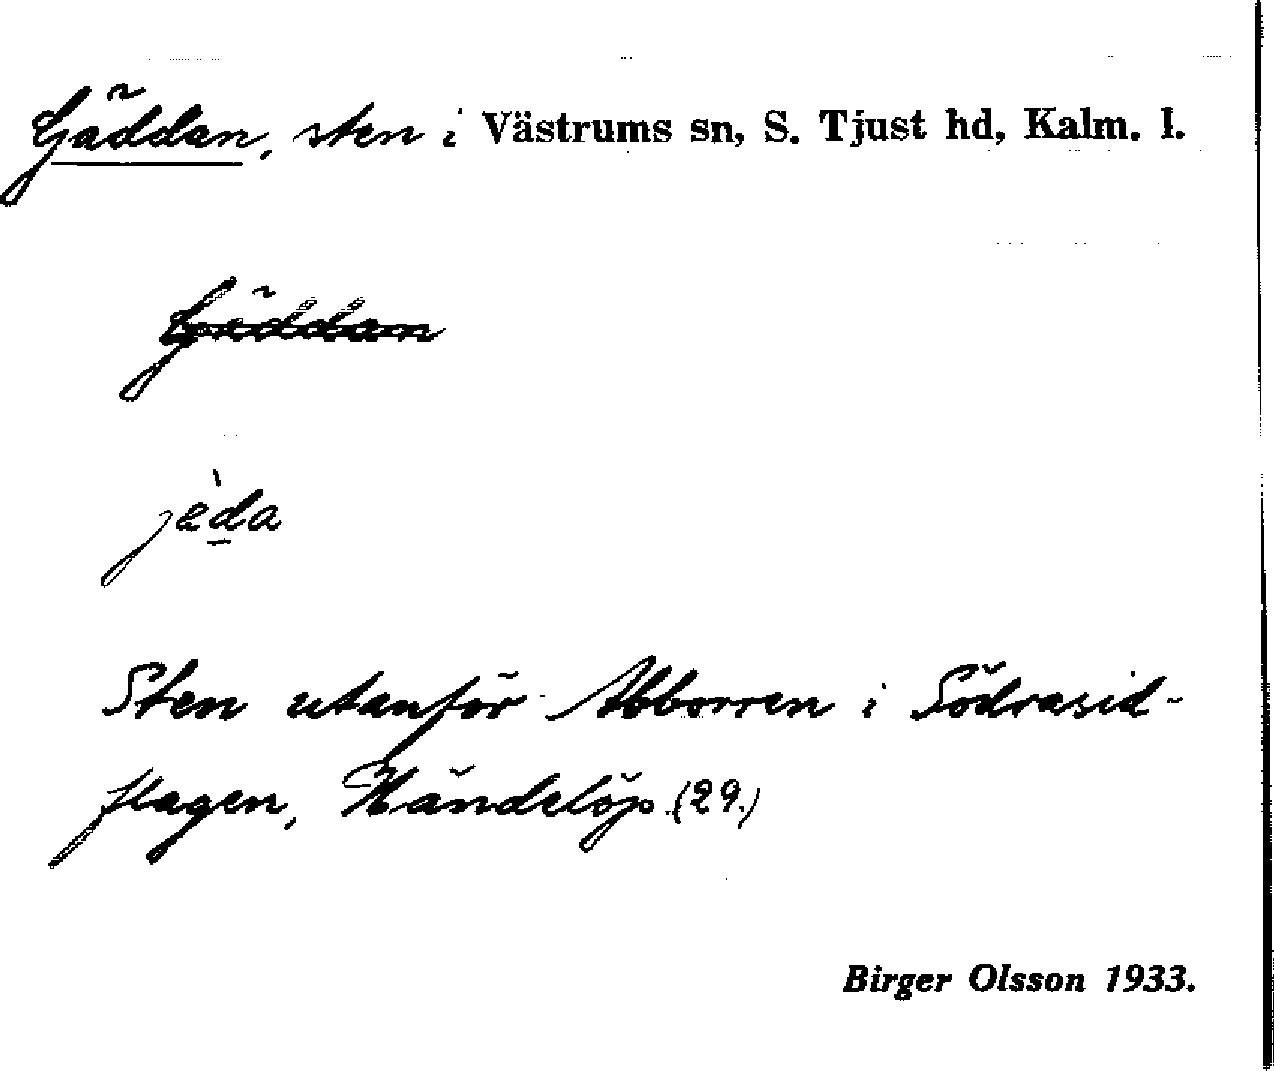 Gäddan, sten i Västrums sn, S. Tjust hd, Kalm. l.
Gäddan
jèda
Sten utanför Abborren i Södrasid-
flagen, Händelöp (29.)
Birger Olsson 1933.